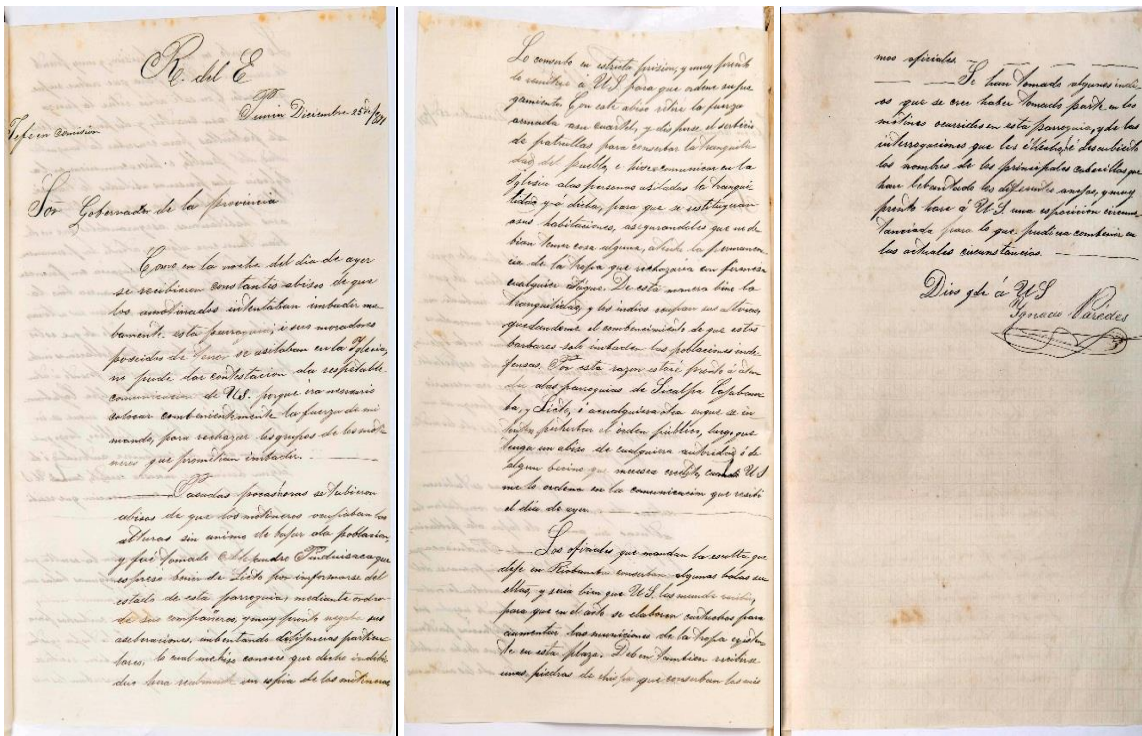 R. del E
Punin Diciembre 25 de/1871
Jefe en Comision
Sor Gobernador de la provincia
Como en la noche del dia de ayer
se recibieron constantes abisos de que
los amotinados intentaban imbadir nue-
bamente esta parroquia; i sus moradores
poseidos de terror se asilaban en la Yglesia,
no pude dar contestacion ala respetable
comunicacion de US. porque era necesario
colocar combenientemente la fuerza de mi
mando, para rechazar los grupos de los moti-
neros que prometian imbadir.
Pasadas pocas horas se tubieron
abisos de que los motineros ocupaban las
alturas sin animo de bajar ala poblacion,
y fué tomado Alejandro que
espresó benir de Licto por informarse del
estado de esta parroquia, mediante orden
de sus compañeros, y muy pronto negaba sus
aseberaciones, inbentando diligencias particu-
lares, lo cual me hiso conocer que dicho indibi-
duo hera realmente un espia de los motineros
Lo conserbo en estricta prision, y muy pronto
lo remitiré á US. para que ordene su jus-
gamiento. Con este abiso retiré la fuerza
armada asu cuartel, y dispuse el serbicio
de patrullas para conserbar la tranquili-
dad del pueblo, e hise comunicar en la
Yglesia alas personas asiladas la tranqui-
lidad y a dicha, para que se restituyeran
asus habitaciones, asegurandoles que no de-
bian temer cosa alguna, atenta la permanen-
cia de la tropa que rechazaria con firmeza
cualquier ataque. De esta manera bino la
tranquilidad, y los indios ocupan sus alturas,
quedandome el combencimiento de que estos
barbaros solo imbaden las poblaciones inde-
fensas. Por esta razon estaré pronto á aten-
der alas parroquias de Sicalpa Cajabam-
ba, y Licto, ó acualquiera otra enque se in-
tente perturbar el órden público, luego que
tenga un abiso de cualquiera autoridad ó de
algun becino que meresca credito, cuando US
me lo ordena en la comunicacion que recibí
el dia de ayer.
Los oficiales que mandan la escolta que
dejé en Riobamba conserban algunas balas su-
eltas, y seria bien que US. las mande remitir,
para que en el acto se elaboren cartuchos para
aumentar las municiones de la tropa existen-
te en esta plaza. Deben tambien recibirse
unas piedras de chispa que conserban los mis
mos oficiales.
Se han tomado algunos indi-
os que se cree haber tomado parte en los
motines ocurridos en esta parroquia, y de las
interrogaciones que les é hecho, é descubierto
los nombres de los principales cabecillas que
han lebantado los diferentes anejos, y muy
pronto haré á US. una esposicion circuns-
tanciada para lo que pudiera combenir en
las actuales circunstancias.
Dios gde á US
Ygnacio Paredes